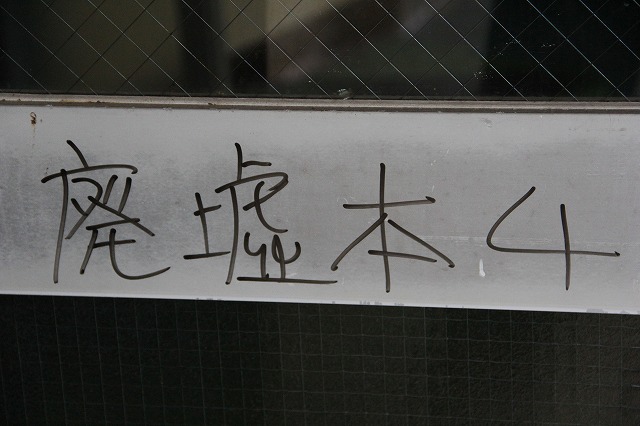 廃墟本4